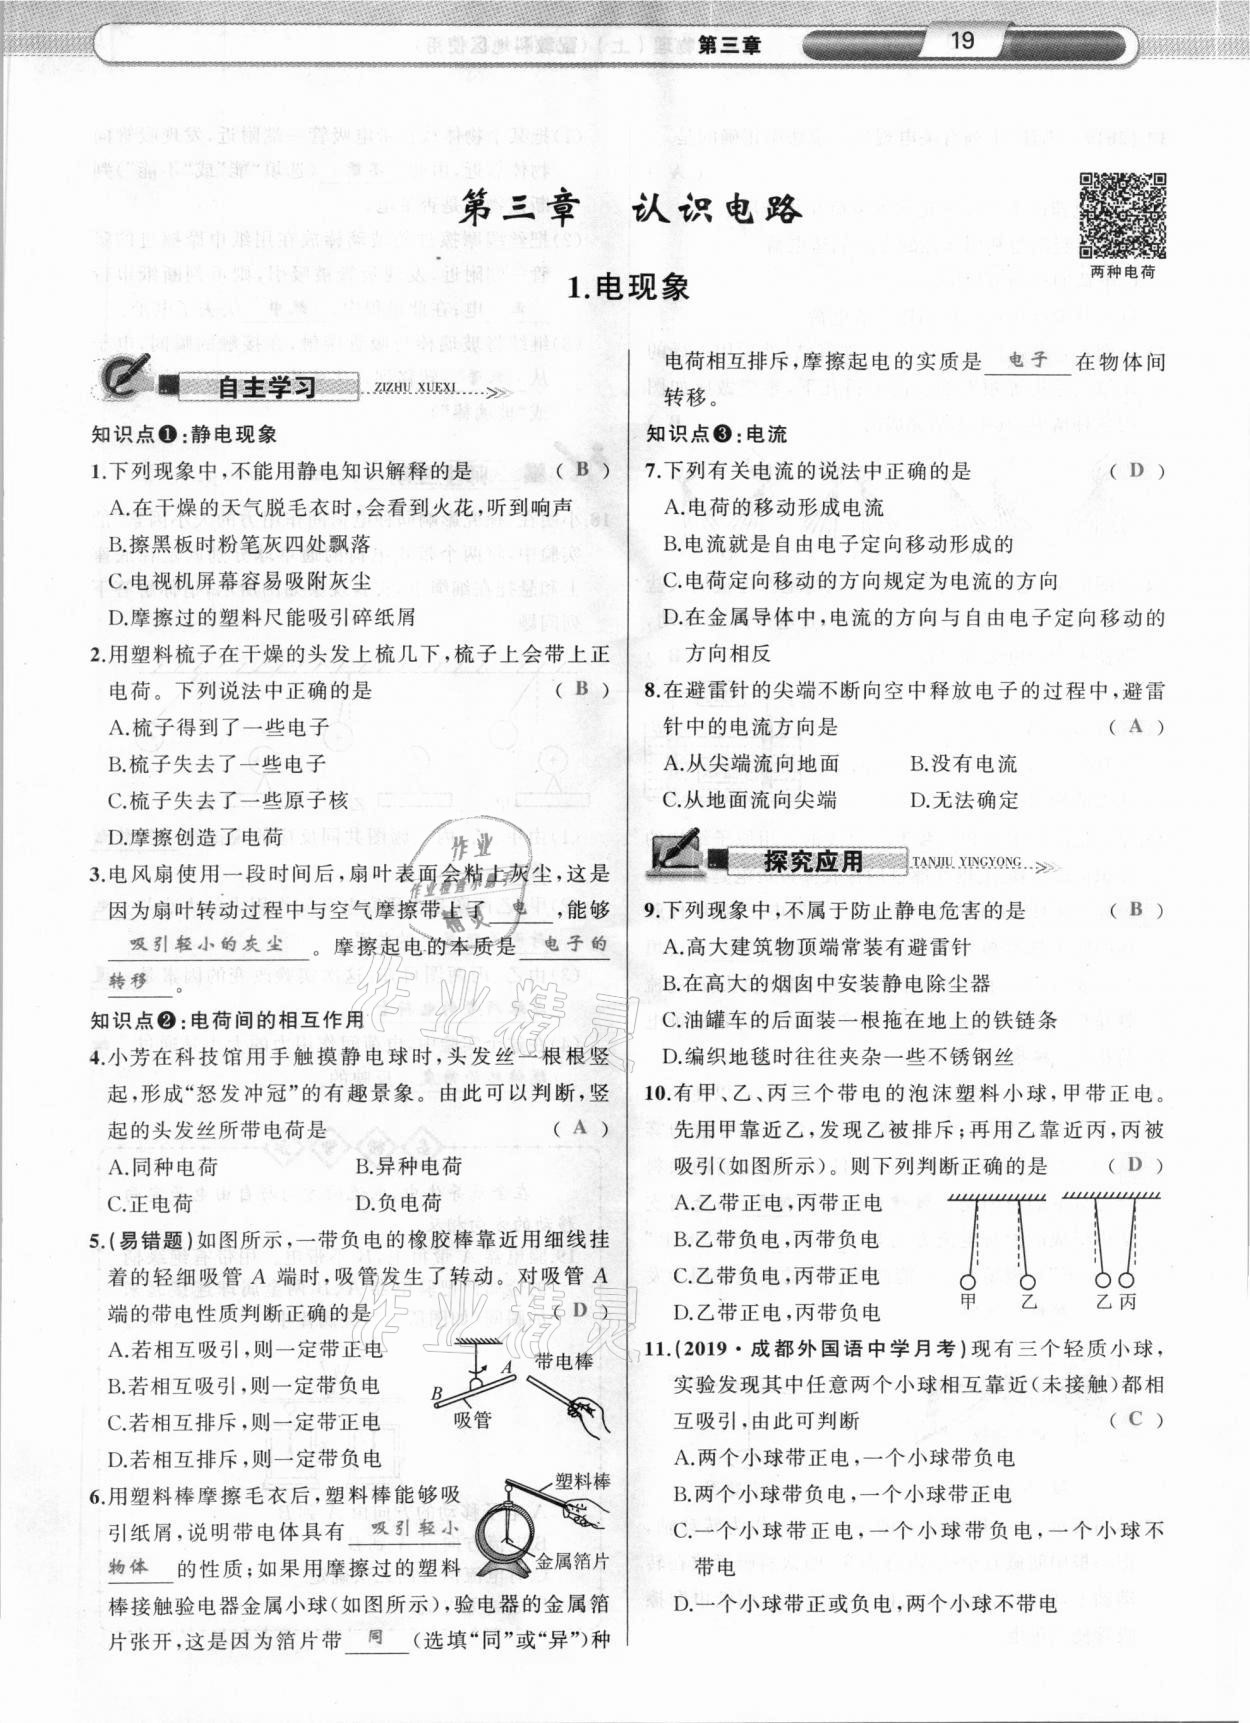 第三章
19
第三章 认识电路
两种电荷
1.电现象
自主学习 ZIZHU XUEXI
知识点❶:静电现象
1.下列现象中,不能用静电知识解释的是 ( B )
A.在干燥的天气脱毛衣时,会看到火花,听到响声
B.擦黑板时粉笔灰四处飘落
C.电视机屏幕容易吸附灰尘
D.摩擦过的塑料尺能吸引碎纸屑
2.用塑料梳子在干燥的头发上梳几下,梳子上会带上正
电荷。下列说法中正确的是 ( B )
A.梳子得到了一些电子
B.梳子失去了一些电子
C.梳子失去了一些原子核
D.摩擦创造了电荷
3.电风扇使用一段时间后,扇叶表面会粘上灰尘,这是
因为扇叶转动过程中与空气摩擦带上了 电 ,能够
吸引轻小的灰尘 。摩擦起电的本质是 电子的
转移 。
知识点❷:电荷间的相互作用
4.小芳在科技馆用手触摸静电球时,头发丝一根根竖
起,形成“怒发冲冠”的有趣景象。由此可以判断,竖
起的头发丝所带电荷是 ( A )
A.同种电荷 B.异种电荷
C.正电荷 D.负电荷
5.(易错题)如图所示,一带负电的橡胶棒靠近用细线挂
着的轻细吸管 A 端时,吸管发生了转动。对吸管 A
端的带电性质判断正确的是 ( D )
A.若相互吸引,则一定带正电
B.若相互吸引,则一定带负电
C.若相互排斥,则一定带正电
D.若相互排斥,则一定带负电
带电棒
A
B
吸管
6.用塑料棒摩擦毛衣后,塑料棒能够吸
引纸屑,说明带电体具有 吸引轻小
物体 的性质;如果用摩擦过的塑料
棒接触验电器金属小球(如图所示),验电器的金属箔
片张开,这是因为箔片带 同 (选填“同”或“异”)种
塑料棒
金属箔片
电荷相互排斥,摩擦起电的实质是 电子 在物体间
转移。
知识点❸:电流
7.下列有关电流的说法中正确的是 ( D )
A.电荷的移动形成电流
B.电流就是自由电子定向移动形成的
C.电荷定向移动的方向规定为电流的方向
D.在金属导体中,电流的方向与自由电子定向移动的
方向相反
8.在避雷针的尖端不断向空中释放电子的过程中,避雷
针中的电流方向是 ( A )
A.从尖端流向地面 B.没有电流
C.从地面流向尖端 D.无法确定
探究应用 TANJIU YINGYONG
9.下列现象中,不属于防止静电危害的是 ( B )
A.高大建筑物顶端常装有避雷针
B.在高大的烟囱中安装静电除尘器
C.油罐车的后面装一根拖在地上的铁链条
D.编织地毯时往往夹杂一些不锈钢丝
10.有甲、乙、丙三个带电的泡沫塑料小球,甲带正电。
先用甲靠近乙,发现乙被排斥;再用乙靠近丙,丙被
吸引(如图所示)。则下列判断正确的是 ( D )
A.乙带正电,丙带正电
B.乙带负电,丙带负电
C.乙带负电,丙带正电
D.乙带正电,丙带负电
甲 乙 乙 丙
11.(2019·成都外国语中学月考)现有三个轻质小球,
实验发现其中任意两个小球相互靠近(未接触)都相
互吸引,由此可判断 ( C )
A.两个小球带正电,一个小球带负电
B.两个小球带负电,一个小球带正电
C.一个小球带正电,一个小球带负电,一个小球不
带电
D.一个小球带正或负电,两个小球不带电
作业精灵
作业精灵